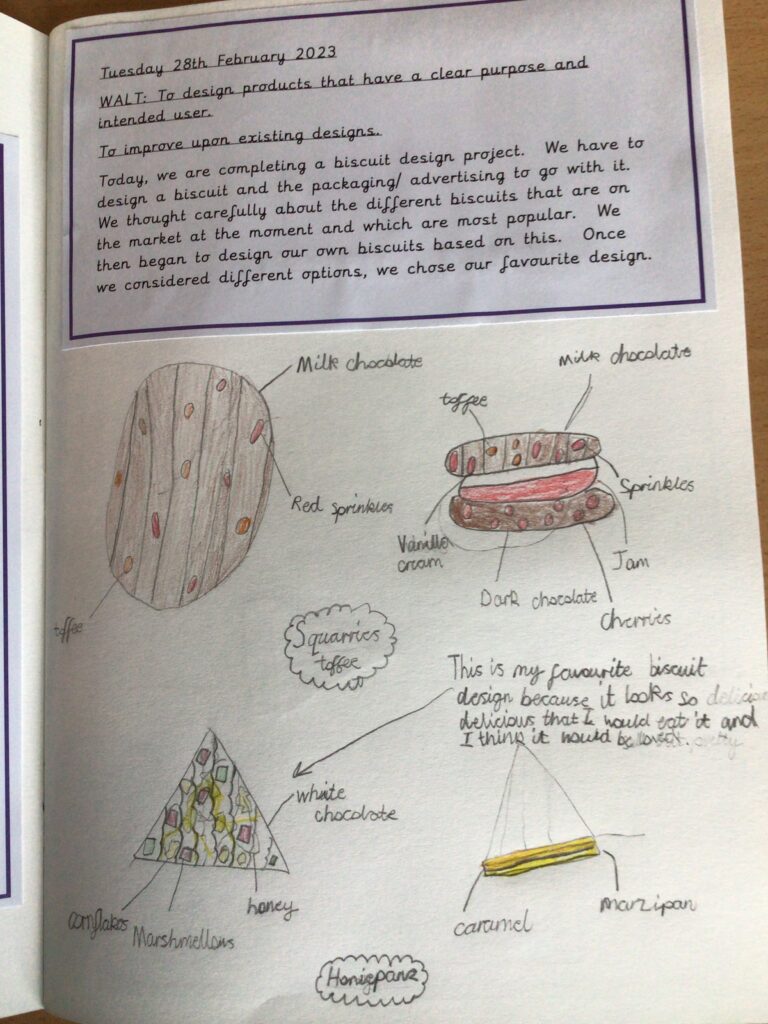 Tuesday 28th February 2023
WALT: To design products that have a clear purpose and
intended user.
To improve upon existing designs.
Today, we are completing a biscuit design project. We have to
design a biscuit and the packaging/ advertising to go with it.
We thought carefully about the different biscuits that are on
the market at the moment and which are most popular. We
then began to design our own biscuits based on this. Once
we considered different options, we chose our favourite design.
Milk chocolate
Red sprinkles
toffee
Milk chocolate
toffee
Sprinkles
Vanilla
cream
Jam
Dark chocolate
Cherries
Squarries
toffee
This is my favourite biscuit
design because it looks so
delicious that I would eat it and
I think it would be
white
chocolate
cornflakes
Marshmellows
honey
caramel
marzipan